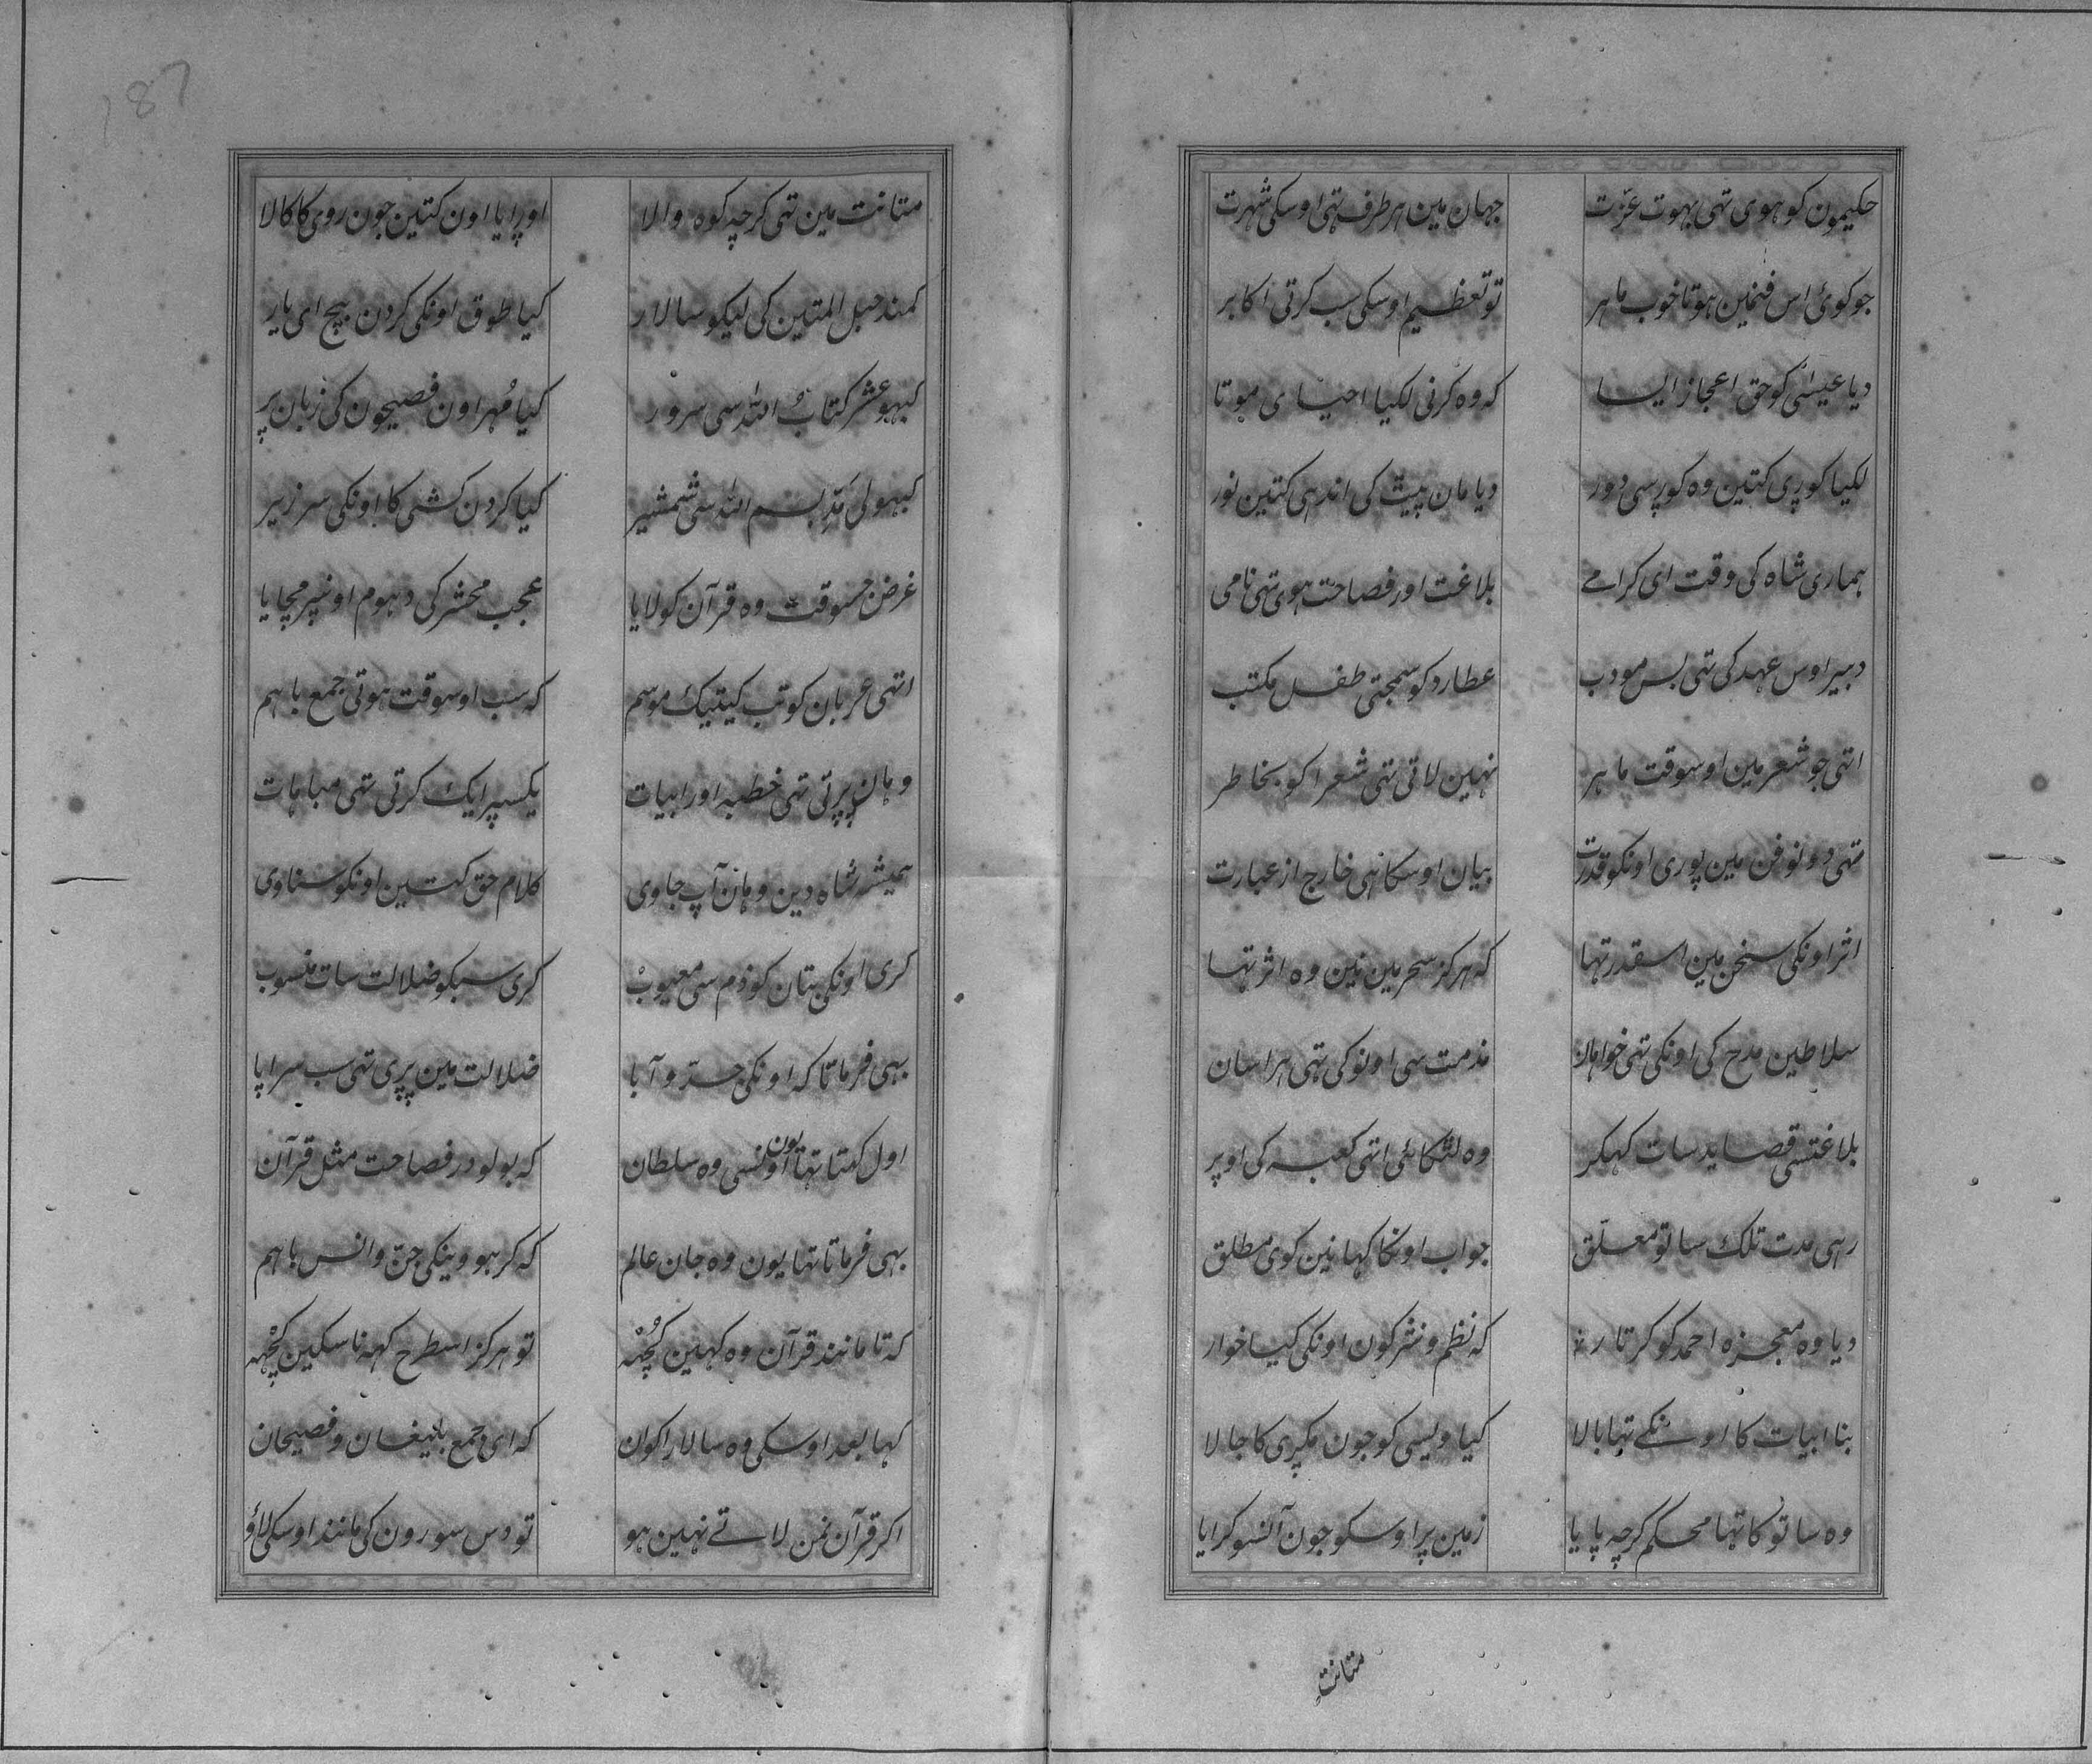 حکیمون کو ہوی تہی بہوت عزّت جہان مین ہر طرف تہی اوسکی شہرت
جو کوئ اس فنمین ہوتا خوب ماہر تو تعظیم اوسکی سب کرتی اکابر
دیا عیسٰی کو حق اعجاز ایسا کہ وہ کرنی لکیا احیای موتا
لکیا کوڑی کتین وہ کوڑسی دور دیا مان پیٹ کی اندہی کتین نور
ہماری شاہ کی وقت ای کرامے بلاغت اور فصاحت ہوی تہی نامی
دبیر اوس عہد کی تہی بس مودب عطارد کو سمجتی طفل مکتب
اتہی جو شعر مین اوسوقت ماہر نہین لاتی تہی شعرا کو بخاطر
تہی دونو فن مین پوری اونکو قدرت بیان اوسکا ہی خارج از عبارت
اثر اونکی سخن مین اسقدر تہا کہ ہرکز سحر مین نین وہ اثر تہا
سلاطین مدح کی اونکی تہی خواہان مذمت سی اونو کی تہی ہراسان
بلاغتسی قصاید سات کہکر وہ لٹکائی اتہی کعبہ کی اوپر
رہی مدت تلک ساتو معلّق جواب اونکا کہا نین کوی مطلق
دیا وہ معجزہ احمد کو کرتار کہ نظم و نثر کون اونکی کیا خوار
بنا ابیات کا اونکے تہا بالا کیا ویسی کو جون مکڑی کا جالا
وہ ساتو کا تہا محکم کرچہ پایا زمین پر اوسکو جون آنسو کرایا
متانت
متانت مین تہی کرچہ کوہ والا اوڑایا اون کتین جون روی کا کالا
کمند حبل المتین کی لیکو سالار کیا طوق اونکی کردن بیچ ای یار
کبہو عشر کتابُ اللہ سی سرور کیا مُہر اون فصیحون کی زبان پر
کبہو لی مَدِّ بسم اللہ سی شمشیر کیا کردن کشی کا اونکی سر زیر
غرض جسوقت وہ قرآن کو لایا عجب محشر کی دہوم اونپر مچایا
اتہی عربان کو تب کیتیک موسم کہ سب اوسوقت ہوتی جمع باہم
وہان پڑتی تہی خطبہ اور ابیات یکسپر ایک کرتی تہی مباہات
ہمیشہ شاہ دین وہان آپ جاوی کلام حق کتین اونکو سناوی
کری اونکی بتان کو ذم سی معیوب کری سبکو ضلالت سات منسوب
بہی فرماتا کہ اونکی جدّ و آبا ضلالت مین پڑی تہی سب سراپا
اول کہتا تہا یون اونسی وہ سلطان کہ بولو در فصاحت مثل قرآن
بہی فرماتا تہا یون وہ جان عالم کہ کر ہووینکی جن و انس باہم
کہ تا مانند قرآن وہ کہین کچُہہ تو ہرکز اسطرح کہہ نا سکین کچُہہ
کہا بعد اوسکی وہ سالار اکوان کہ ای جمع بلیغان و فصیحان
اکر قرآن نمن لاتے نہین ہو تو دس سورون کی مانند اوسکی لاؤ
187